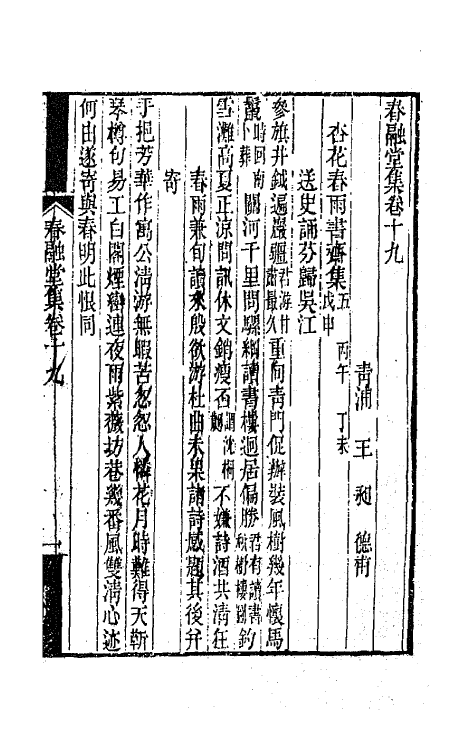 春融堂集卷十九
青浦 王 昶 德甫
杏花春雨書齋集五 丙午 丁未 戊申
送史誦芬歸吳江
參旗井鉞遍巖疆君游甘肅最久重向靑門促辦裝風樹幾年懷馬
鬣時回南卜葬關河千里問驪綱讀書樓迥居偏勝君有讀書秋樹樓圖釣
雪灘高夏正涼問訊休文銷瘦否謂沈桐不嫌詩酒共淸狂
春雨兼旬讀來殷欲游杜曲未果諸詩感題其後弁
寄
手把芳華作寓公淸游無暇苦怱怱人憐花月時難得天靳
琴樽句易工白閣煙嵐連夜雨紫薇坊巷幾番風雙淸心迹
何由遂寄與春明此恨同
春融堂集卷十九
一